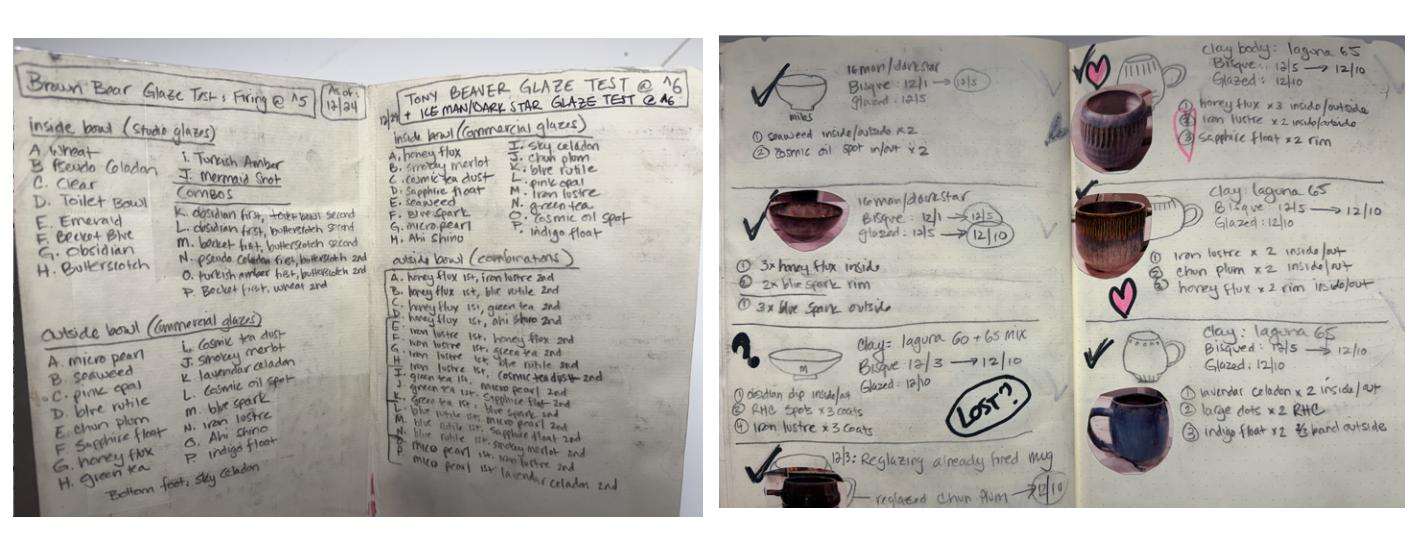 Brown Bear Glaze Test: Firing @ ^5
As of: 12/24
inside bowl (studio glazes)
A. Wheat
B Pseudo Celadon
C. Clear
D. Toilet Bowl
E. Emerald
F. Becket Blue
G. Obsidian
H. Butterscotch
i. Turkish Amber
J. Mermaid Snot
Combos
K. obsidian first, toilet bowl second
L. obsidian first, butterscotch second
m. becket first, butterscotch second
N. pseudo celadon first, butterscotch 2nd
O. turkish amber first, butterscotch 2nd
P. Becket first, wheat 2nd
Outside bowl (Commercial glazes)
A. micro pearl
B. seaweed
C. pink opal
D. blue rutile
E. chun plum
F. Sapphire float
G. honey flux
H. green tea
i. Cosmic tea dust
J. Smokey merlot
K. lavendar celadon
L. Cosmic oil spot
m. blue spark
N. iron lustre
O. Ahi Shino
P. indigo float
Bottom foot, sky celadon
TONY BEAVER GLAZE TEST @ ^6
12/24 + ICEMAN/DARK STAR GLAZE TEST @ ^6
inside bowl (commercial glazes)
A. honey flux
B. smokey merlot
C. cosmic tea dust
D. Sapphire float
E. seaweed
F. Blue Spark
G. micro pearl
H. Ahi Shino
I. Sky celadon
J. chun plum
K. blue rutile
L. pink opal
M. Iron lustre
N. green tea
O. Cosmic oil spot
P. indigo float
outside bowl (combinations)
A. honey flux 1st, iron lustre 2nd
B. honey flux 1st, blue rutile 2nd
C. honey flux 1st, green tea 2nd
D. honey flux 1st, Ahi Shino 2nd
E. iron lustre 1st, honey flux 2nd
F. iron lustre 1st, green tea 2nd
G. iron lustre 1st, blue rutile 2nd
H. iron lustre 1st, cosmic tea dust 2nd
I. green tea 1st, micro pearl 2nd
J. green tea 1st, Sapphire float 2nd
K. green tea 1st, blue spark 2nd
L. blue rutile 1st, micro pearl 2nd
M. blue rutile 1st, sapphire float 2nd
N. blue rutile 1st, smokey merlot 2nd
O. micro pearl 1st, iron lustre 2nd
P. micro pearl 1st lavendar celadon 2nd
miles
Iceman/darkstar
Bisque: 12/1 → 12/5
Glazed: 12/5
① seaweed inside/outside x2
② cosmic oil spot in/out x2
Iceman/darkstar
Bisque: 12/1 → 12/5
glazed: 12/5 → 12/10
① 3x honey flux inside
② 2x blue spark rim
① 3x blue spark outside
?
M
Clay= laguna 60 + 65 mix
Bisque: 12/3 → 12/10
Glazed: 12/10
LOST?
① obsidian dip inside/out
② RHC spots x3 coats
④ iron lustre x 3 coats
12/3: Reglazing already fired mug
reglazed Chun Plum → 12/10
Clay body: laguna 65
Bisque: 12/5 → 12/10
Glazed: 12/10
① honey flux x3 inside/outside
② iron lustre x 2 inside/outside
③ sapphire float x2 rim
Clay: laguna 65
Bisque: 12/5 → 12/10
Glazed: 12/10
① Iron lustre x 2 inside/out
② chun plum x 2 inside/out
③ honey flux x 2 rim inside/out
Clay: laguna 65
Bisqued: 12/5 → 12/10
Glazed: 12/10
① lavendar celadon x 2 inside/out
② large dots x 2 RHC
③ indigo float x2 ⅔ band outside